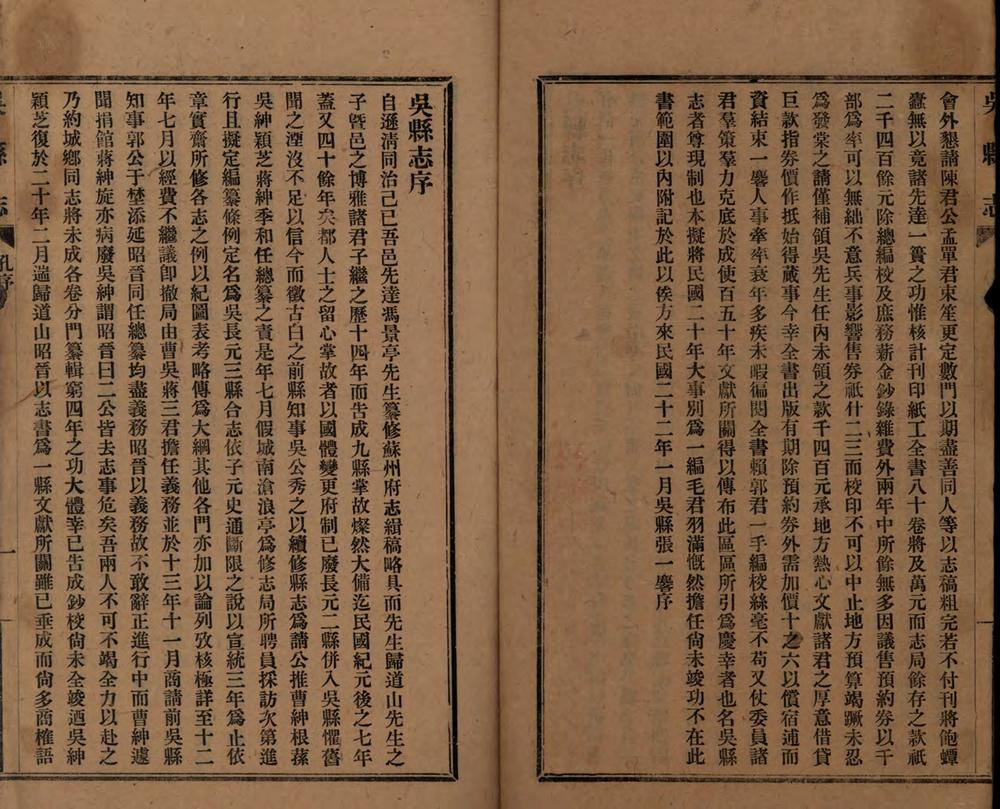 吳縣志
會外懇請陳君公孟單君束笙更定數門以期盡善同人等以志稿粗完若不付刊將飽蟫
蠹無以竟諸先達一簣之功惟核計刊印紙工全書八十卷將及萬元而志局餘存之款祇
二千四百餘元除總編校及庶務薪金鈔錄雜費外兩年中所餘無多因議售預約券以千
部為率可以無絀不意兵事影響售券祇什二三而校印不可以中止地方預算竭蹶未忍
為發棠之請僅補領吳先生任內未領之款千四百元承地方熱心文獻諸君之厚意借貸
巨款指券價作抵始得蕆事今幸全書出版有期除預約券外需加價十之六以償宿逋而
資結束一麐人事牽率衰年多疾未暇徧閱全書賴郭君一手編校絲毫不苟又仗委員諸
君羣策羣力克底於成使百五十年文獻所關得以傳布此區區所引為慶幸者也名吳縣
志者尊現制也本擬將民國二十年大事別為一編毛君羽滿慨然擔任尙未竣功不在此
書範圍以內附記於此以俟方來民國二十二年一月吳縣張一麐序
吳縣志序
自遜淸同治己巳吾邑先達馮景亭先生纂修蘇州府志緝稿略具而先生歸道山先生之
子曁邑之博雅諸君子繼之歷十四年而告成九縣掌故燦然大備迄民國紀元後之七年
蓋又四十餘年矣都人士之留心掌故者以國體變更府制已廢長元二縣併入吳縣懼舊
聞之湮沒不足以信今而徵古白之前縣知事吳公秀之以續修縣志為請公推曹紳根蓀
吳紳穎芝蔣紳季和任總纂之責是年七月假城南滄浪亭為修志局所聘員採訪次第進
行且擬定編纂條例定名為吳長元三縣合志依子元史通斷限之說以宣統三年為止依
章實齋所修各志之例以紀圖表考略傳為大綱其他各門亦加以論列攷核極詳至十二
年七月以經費不繼議卽撤局由曹吳蔣三君擔任義務並於十三年十一月商請前吳縣
知事郭公于埜添延昭晉同任總纂均盡義務昭晉以義務故不敢辭正進行中而曹紳遽
聞捐館蔣紳旋亦病廢吳紳謂昭晉曰二公皆去志事危矣吾兩人不可不竭全力以赴之
乃約城鄉同志將未成各卷分門纂輯窮四年之功大體幸已告成鈔校尙未全竣迺吳紳
穎芝復於二十年二月遄歸道山昭晉以志書為一縣文獻所關雖已垂成而尙多商榷語
縣志
孔序
一